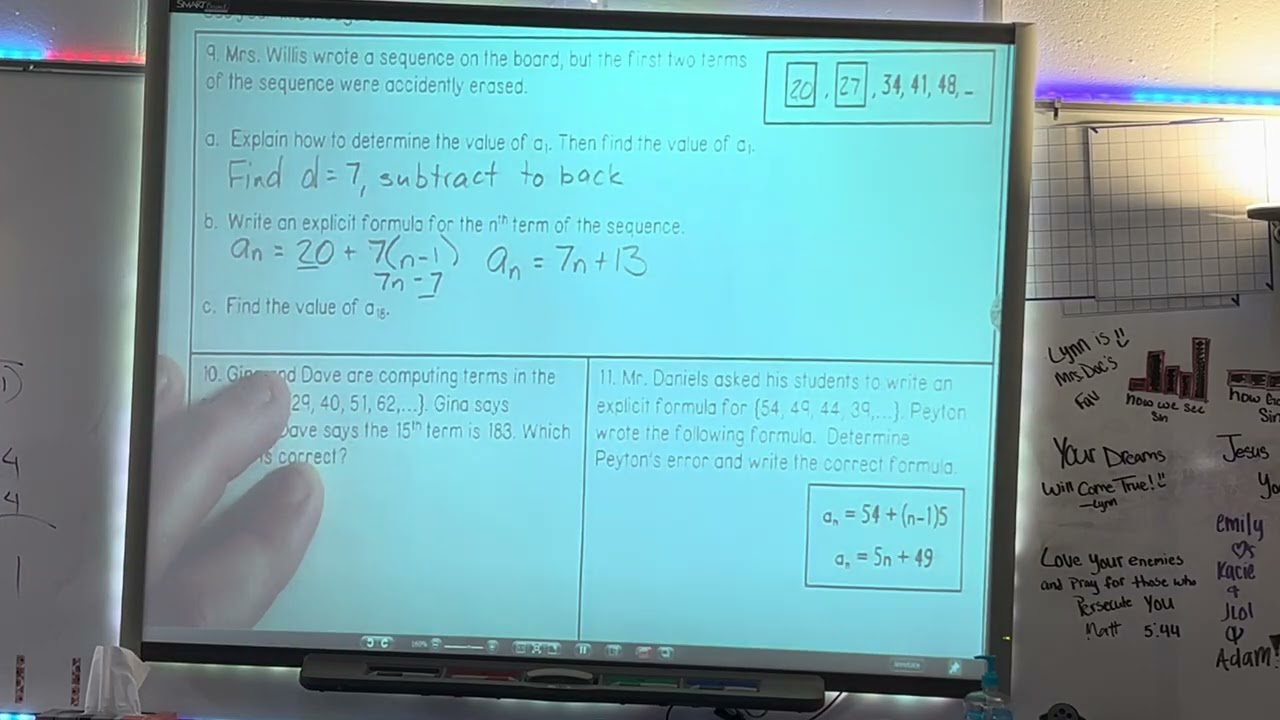 SMART
9. Mrs. Willis wrote a sequence on the board, but the first two terms
of the sequence were accidently erased.
20 , 27 , 34, 41, 48, ...
a. Explain how to determine the value of a₁. Then find the value of a₁.
Find d = 7, subtract to back
b. Write an explicit formula for the nᵗʰ term of the sequence.
aₙ = 20 + 7(n-1) aₙ = 7n + 13
7n - 7
c. Find the value of a₁₈.
10. Gina and Dave are computing terms in the
29, 40, 51, 62,...}. Gina says
Dave says the 15ᵗʰ term is 183. Which
is correct?
11. Mr. Daniels asked his students to write an
explicit formula for {54, 49, 44, 39,...}. Peyton
wrote the following formula. Determine
Peyton's error and write the correct formula.
aₙ = 54 + (n-1)5
aₙ = 5n + 49
1)
4
4
1
Lynn is
Mrs Doc's
Fav
how we see
Sin
Your Dreams
Will Come True!!
-Lynn
Love your enemies
and Pray for those who
Persecute You
Matt 5:44
Jesus
emily
Kacie
&
Adam